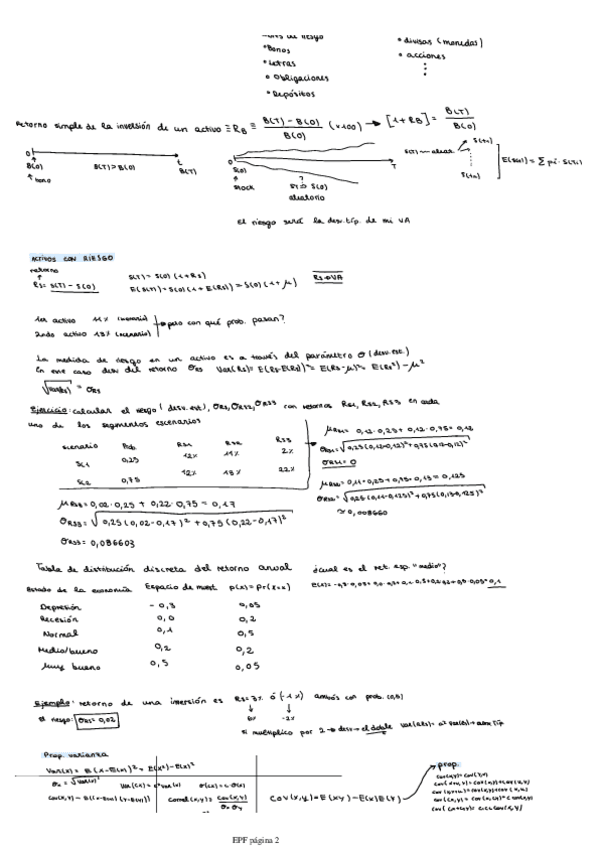 de riesgo
• Bonos
• Letras
• Obligaciones
• Depósitos
• divisas (monedas)
• acciones
Retorno simple de la inversión de un activo ≡ RB ≡ B(T) - B(0) / B(0) (x100) → [1+RB] = B(T) / B(0)
0 t
B(0) B(T) > B(0) B(T)
bono
0 T
S(0)
stock
aleatorio
E(S(T)) = Σ pi · S(Ti)
El riesgo será la desv. típ. de mi VA
ACTIVOS CON RIESGO
retorno
RS = S(T) - S(0)
S(T) = S(0) (1+RS)
E(S(T)) = S(0) (1 + E(RS)) = S(0) (1+μ)
RS → VA
1er activo 11% (escenario)
2ndo activo 13% (escenario)
pero con qué prob. pasan?
La medida de riesgo en un activo es a través del parámetro σ (desv. est.)
En ese caso desv del retorno σRS Var(RS) = E(RS-E(RS))² = E(RS-μ)² = E(RS²) - μ²
√Var(RS) = σRS
Ejercicio: calcular el riesgo (desv. est), σRS1, σRS2, σRS3 con retornos RS1, RS2, RS3 en cada
uno de los siguientes escenarios
escenario Prob. RS1 RS2 RS3
SC1 0,25 12% 11% 2%
SC2 0,75 12% 13% 22%
μRS1 = 0,12·0,25 + 0,12·0,75 = 0,12
σRS1 = √0,25(0,12-0,12)² + 0,75(0,12-0,12)²
σRS1 = 0
μRS2 = 0,11·0,25 + 0,75·0,13 = 0,125
σRS2 = √0,25(0,11-0,125)² + 0,75(0,13-0,125)²
≈ 0,008660
μRS3 = 0,02·0,25 + 0,22·0,75 = 0,17
σRS3 = √0,25(0,02-0,17)² + 0,75(0,22-0,17)²
σRS3 = 0,086603
Tabla de distribución discreta del retorno anual ¿cual es el ret. esp. "medio"?
Estado de la economía Espacio de muest p(x) = Pr(X=x)
Depresión -0,3 0,05
Recesión 0,0 0,2
Normal 0,1 0,5
Medio/bueno 0,2 0,2
Muy bueno 0,5 0,05
Ejemplo: retorno de una inversión es RS = 3% ó (-1%) ambos con prob. (0,5)
6% -2%
El riesgo: σRS = 0,02
Si multiplico por 2 → desv → el doble
Prop. varianza
Var(X) = E(X-E(X))² = E(X²) - E(X)²
σx = √Var(X)
Cov(X,Y) = E((X-E(X)) (Y-E(Y)))
Correl(X,Y) = Cov(X,Y) / σx σy
Cov(X,Y) = E(XY) - E(X)E(Y)
prop.
Cov(X,Y) = Cov(Y,X)
EPF página 2